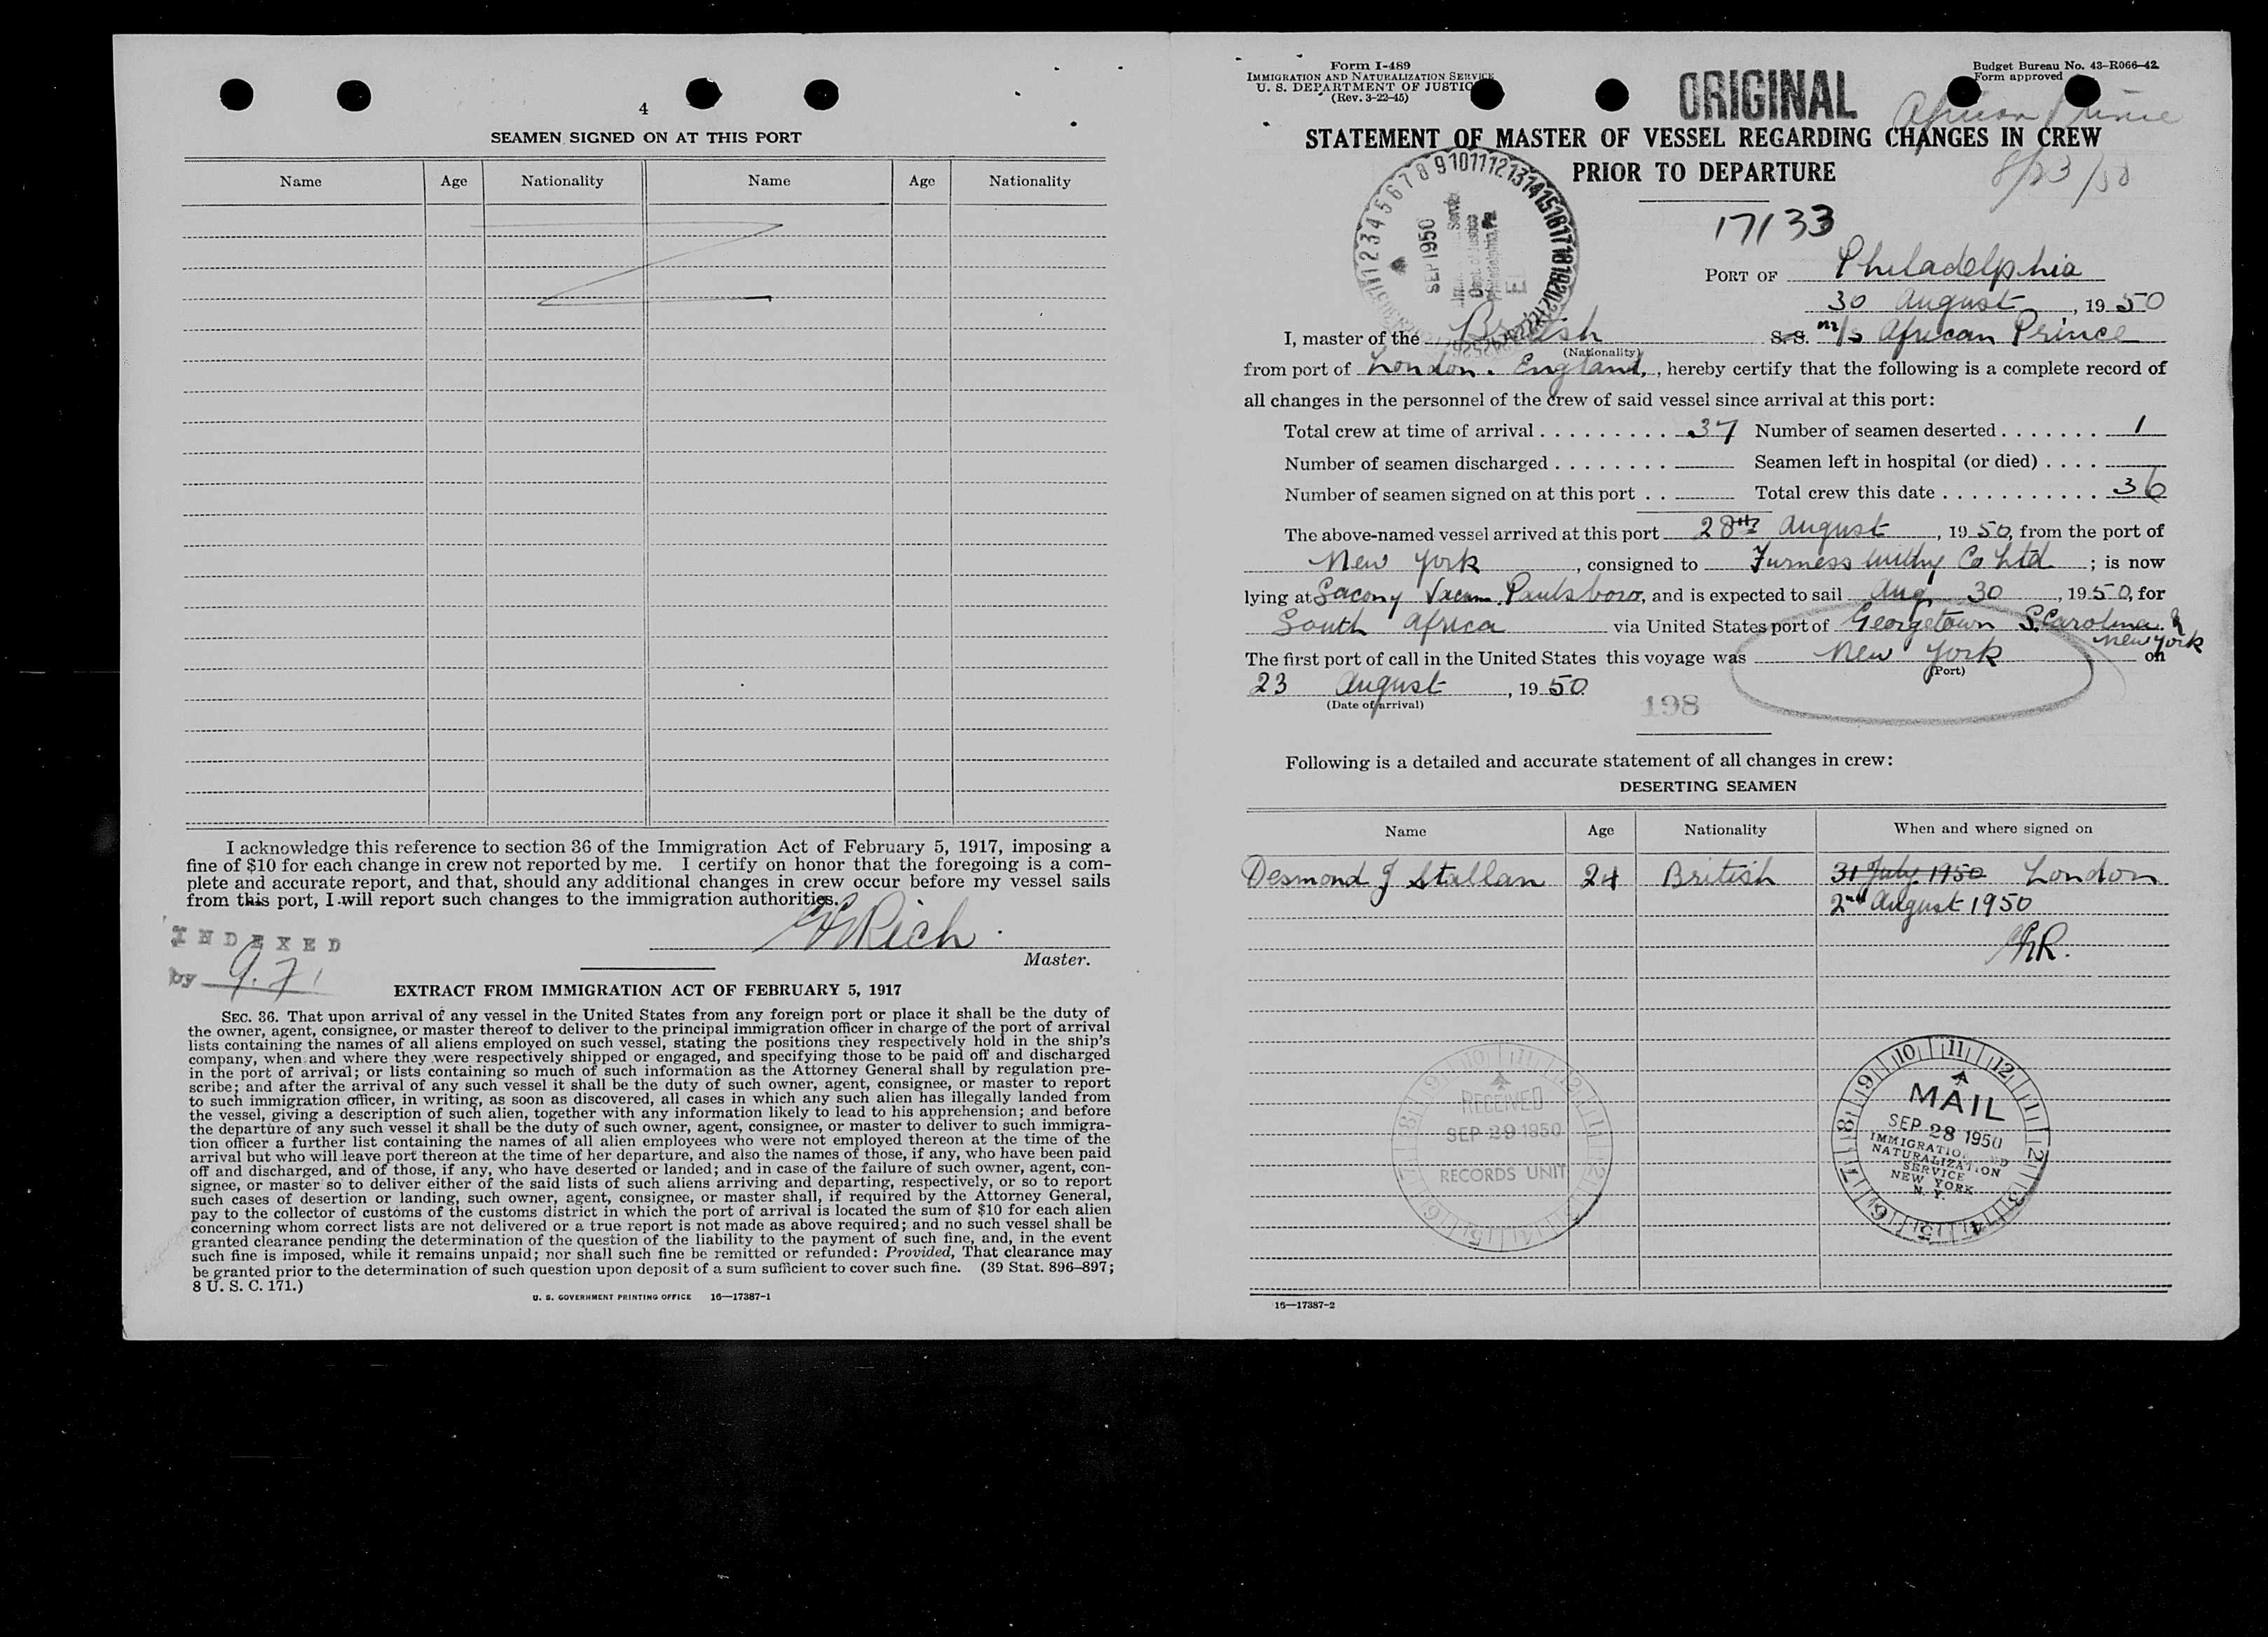 4
SEAMEN SIGNED ON AT THIS PORT
Name Age Nationality Name Age Nationality
I acknowledge this reference to section 36 of the Immigration Act of February 5, 1917, imposing a
fine of $10 for each change in crew not reported by me. I certify on honor that the foregoing is a com-
plete and accurate report, and that, should any additional changes in crew occur before my vessel sails
from this port, I will report such changes to the immigration authorities.
Rich
Master.
INDEXED
by
EXTRACT FROM IMMIGRATION ACT OF FEBRUARY 5, 1917
SEC. 36. That upon arrival of any vessel in the United States from any foreign port or place it shall be the duty of
the owner, agent, consignee, or master thereof to deliver to the principal immigration officer in charge of the port of arrival
lists containing the names of all aliens employed on such vessel, stating the positions they respectively hold in the ship's
company, when and where they were respectively shipped or engaged, and specifying those to be paid off and discharged
in the port of arrival; or lists containing so much of such information as the Attorney General shall by regulation pre-
scribe; and after the arrival of any such vessel it shall be the duty of such owner, agent, consignee, or master to report
to such immigration officer, in writing, as soon as discovered, all cases in which any such alien has illegally landed from
the vessel, giving a description of such alien, together with any information likely to lead to his apprehension; and before
the departure of any such vessel it shall be the duty of such owner, agent, consignee, or master to deliver to such immigra-
tion officer a further list containing the names of all alien employees who were not employed thereon at the time of the
arrival but who will leave port thereon at the time of her departure, and also the names of those, if any, who have been paid
off and discharged, and of those, if any, who have deserted or landed; and in case of the failure of such owner, agent, con-
signee, or master so to deliver either of the said lists of such aliens arriving and departing, respectively, or so to report
such cases of desertion or landing, such owner, agent, consignee, or master shall, if required by the Attorney General,
pay to the collector of customs of the customs district in which the port of arrival is located the sum of $10 for each alien
concerning whom correct lists are not delivered or a true report is not made as above required; and no such vessel shall be
granted clearance pending the determination of the question of the liability to the payment of such fine, and, in the event
such fine is imposed, while it remains unpaid; nor shall such fine be remitted or refunded: Provided, That clearance may
be granted prior to the determination of such question upon deposit of a sum sufficient to cover such fine. (39 Stat. 896–897;
8 U. S. C. 171.)
U. S. GOVERNMENT PRINTING OFFICE 16—17387-1
Form I-489
IMMIGRATION AND NATURALIZATION SERVICE
U. S. DEPARTMENT OF JUSTIC
(Rev. 3-22-45)
ORIGINAL
Budget Bureau No. 43-R066-42
Form approved
African Prince
8/23/50
STATEMENT OF MASTER OF VESSEL REGARDING CHANGES IN CREW
PRIOR TO DEPARTURE
SEP 1950
17133
PORT OF Philadelphia
30 August, 1950
I, master of the British S.S. m/s African Prince
(Nationality)
from port of London. England, , hereby certify that the following is a complete record of
all changes in the personnel of the crew of said vessel since arrival at this port:
Total crew at time of arrival . . . . . . . . . . 37 Number of seamen deserted . . . . . . . 1
Number of seamen discharged . . . . . . . . Seamen left in hospital (or died) . . . .
Number of seamen signed on at this port . . Total crew this date . . . . . . . . . . . . 36
The above-named vessel arrived at this port 28th August, 1950, from the port of
New York, consigned to Furness Withy Co Ltd ; is now
lying at Socony Vacum. Paulsboro, and is expected to sail Aug 30, 1950, for
South Africa via United States port of Georgetown S. Carolina &
New York
The first port of call in the United States this voyage was New York on
(Port)
23 August, 1950
(Date of arrival)
198
Following is a detailed and accurate statement of all changes in crew:
DESERTING SEAMEN
Name Age Nationality When and where signed on
Desmond J Stallan 24 British 31 July 1950 London
2nd August 1950
RECEIVED
SEP 29 1950
RECORDS UNIT
MAIL
SEP 28 1950
IMMIGRATION
NATURALIZATION
SERVICE
NEW YORK
N. Y.
16—17387-2